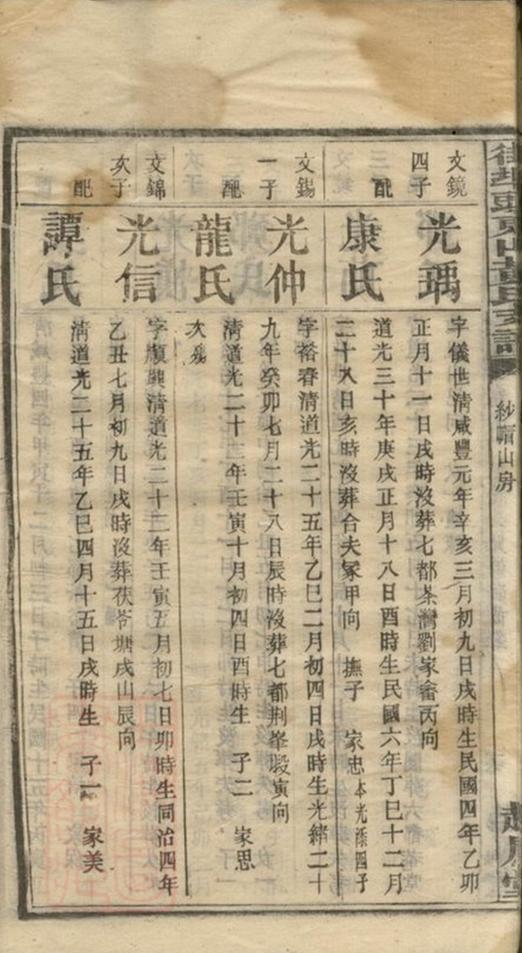 紗帽山房
文鏡
四子
光瑀
字儀世清咸豐元年辛亥三月初九日戌時生民國四年乙卯
正月十一日戌時沒葬七都茶灣劉家畬丙向
配
康氏
道光三十年庚戌正月十八日酉時生民國六年丁巳十二月
二十八日亥時沒葬合夫冢甲向 撫子 家忠本光條四子
文錫
一子
光仲
字裕春清道光二十五年乙巳二月初四日戌時生光緒二十
九年癸卯七月二十八日辰時沒葬七都荆峯塅寅向
配
龍氏
清道光二十二年壬寅十月初四日酉時生 子二 家思
次殤
文錦
次子
光信
字顯興清道光二十二年壬寅五月初七日卯時生同治四年
乙丑七月初九日戌時沒葬茯苓塘戌山辰向
配
譚氏
清道光二十五年乙巳四月十五日戌時生 子一 家美